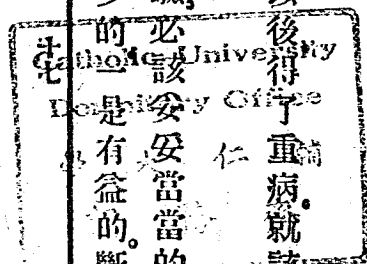 後得了重病。就該
必該妥妥當當的
的一是有益的。斷
Catholic University
Dormitory Office
輔仁